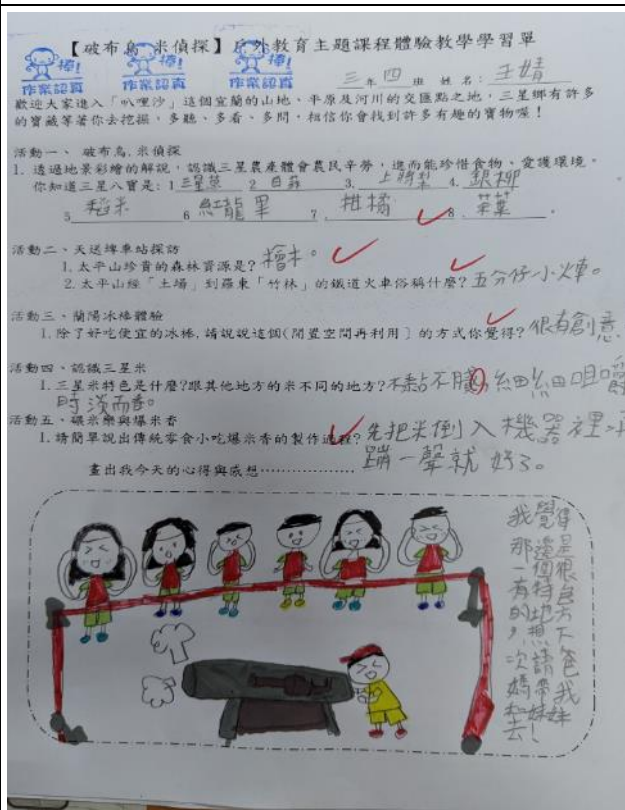 【破布烏 米偵探】戶外教育主題課程體驗教學學習單
棒! 作業認真
棒! 作業認真
棒! 作業認真
三年四班 姓名:王婧
歡迎大家進入「叭哩沙」這個宜蘭的山地、平原及河川的交匯點之地,三星鄉有許多
的寶藏等著你去挖掘,多聽、多看、多問,相信你會找到許多有趣的寶物喔!
活動一、 破布烏.米偵探
1. 透過地景彩繪的解說,認識三星農產體會農民辛勞,進而能珍惜食物、愛護環境。
你知道三星八寶是:1 三星蔥 2 白蒜 3. 上將梨 4. 銀柳
5 稻米 6 紅龍果 7 柑橘 8. 茶葉。
活動二、天送埤車站探訪
1. 太平山珍貴的森林資源是?檜木。
2. 太平山經「土場」到羅東「竹林」的鐵道火車俗稱什麼?五分仔小火車。
活動三、蘭陽冰棒體驗
1. 除了好吃便宜的冰棒,請說說這個(閒置空間再利用〕的方式你覺得?很有創意
活動四、認識三星米
1. 三星米特色是什麼?跟其他地方的米不同的地方?不黏不膩,細細咀嚼
時淡而香。
活動五、碾米樂與爆米香
1. 請簡單說出傳統零食小吃爆米香的製作過程?先把米倒入機器裡
蹦一聲就好了。
畫出我今天的心得與感想……………
我覺得
那邊是
一個很
有特色
的地方
,想下
次請爸
媽帶我
和妹妹
去!